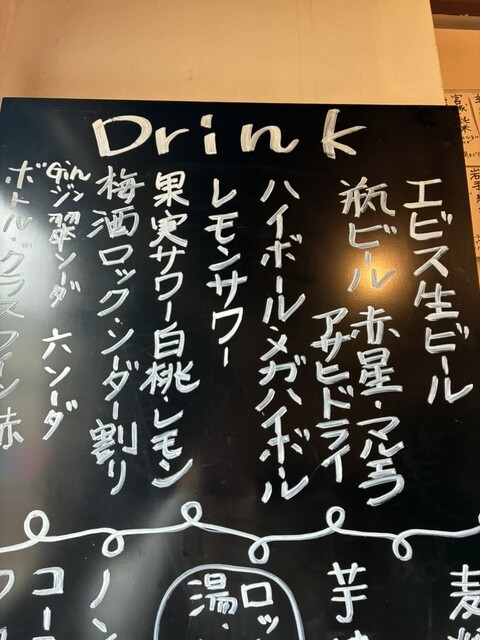 Drink
エビス生ビール
瓶ビール 赤星・マルエフ
アサヒドライ
ハイボール・メガハイボール
レモンサワー
果実サワー白桃・レモン
梅酒ロック・ソーダー割り
Gin ジン
翠ソーダ 六ソーダ
ボトル・グラスワイン赤
麦
芋
ロッ
湯・
ノン
コー